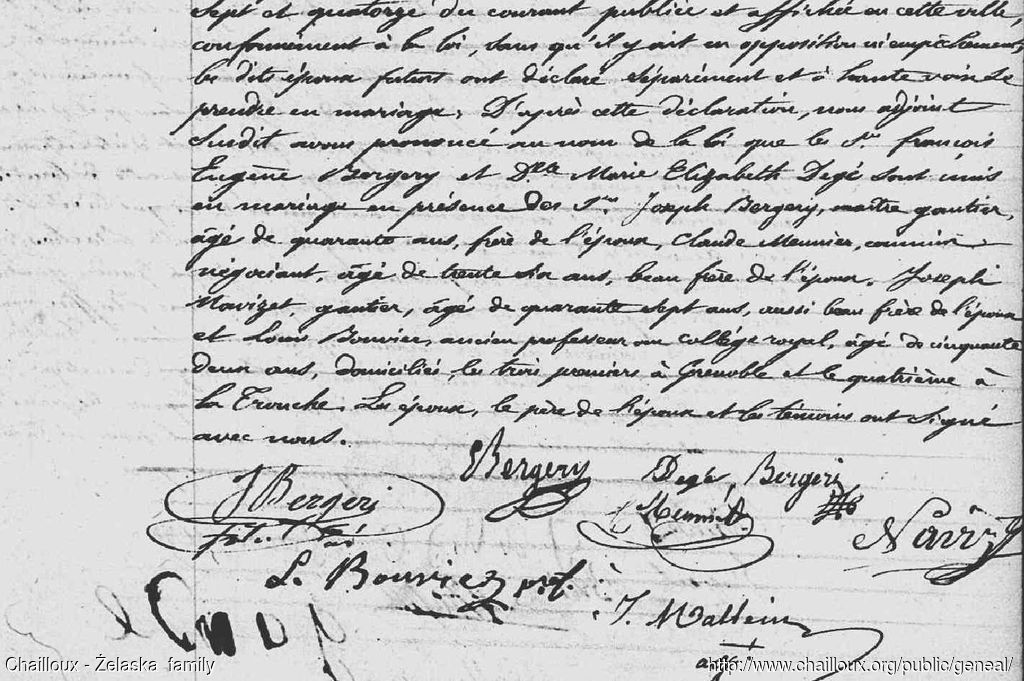 sept et quatorze du courant publiée et affichée en cette ville,
conformément à la loi, sans qu'il y ait eu opposition ni empêchement,
les dits époux futurs ont déclaré séparément et à haute voix se
prendre en mariage. D'après cette déclaration, nous adjoint
susdit avons prononcé au nom de la loi que les Srs françois
Eugène Bergery et Dlle Marie Elizabeth Degé sont unis
en mariage en présence des Srs Joseph Bergery, maître gantier,
âgé de quarante ans, frère de l'époux, Claude Meunier, commis
négociant, âgé de trente six ans, beau frère de l'époux, Joseph
Navizet, gantier, âgé de quarante sept ans, aussi beau frère de l'époux
et Louis Bouvier, ancien professeur au collége royal, âgé de cinquante
deux ans, domiciliés, les trois premiers à Grenoble et le quatrième à
la Tronche. Les époux, le père de l'époux et les témoins ont signé
avec nous.
Bergery Degé, Bergeri
J Bergeri
Meunier
L. Bouvier prof.
J. Mallein
Chailloux - Żelaska family
http://www.chailloux.org/public/geneal/